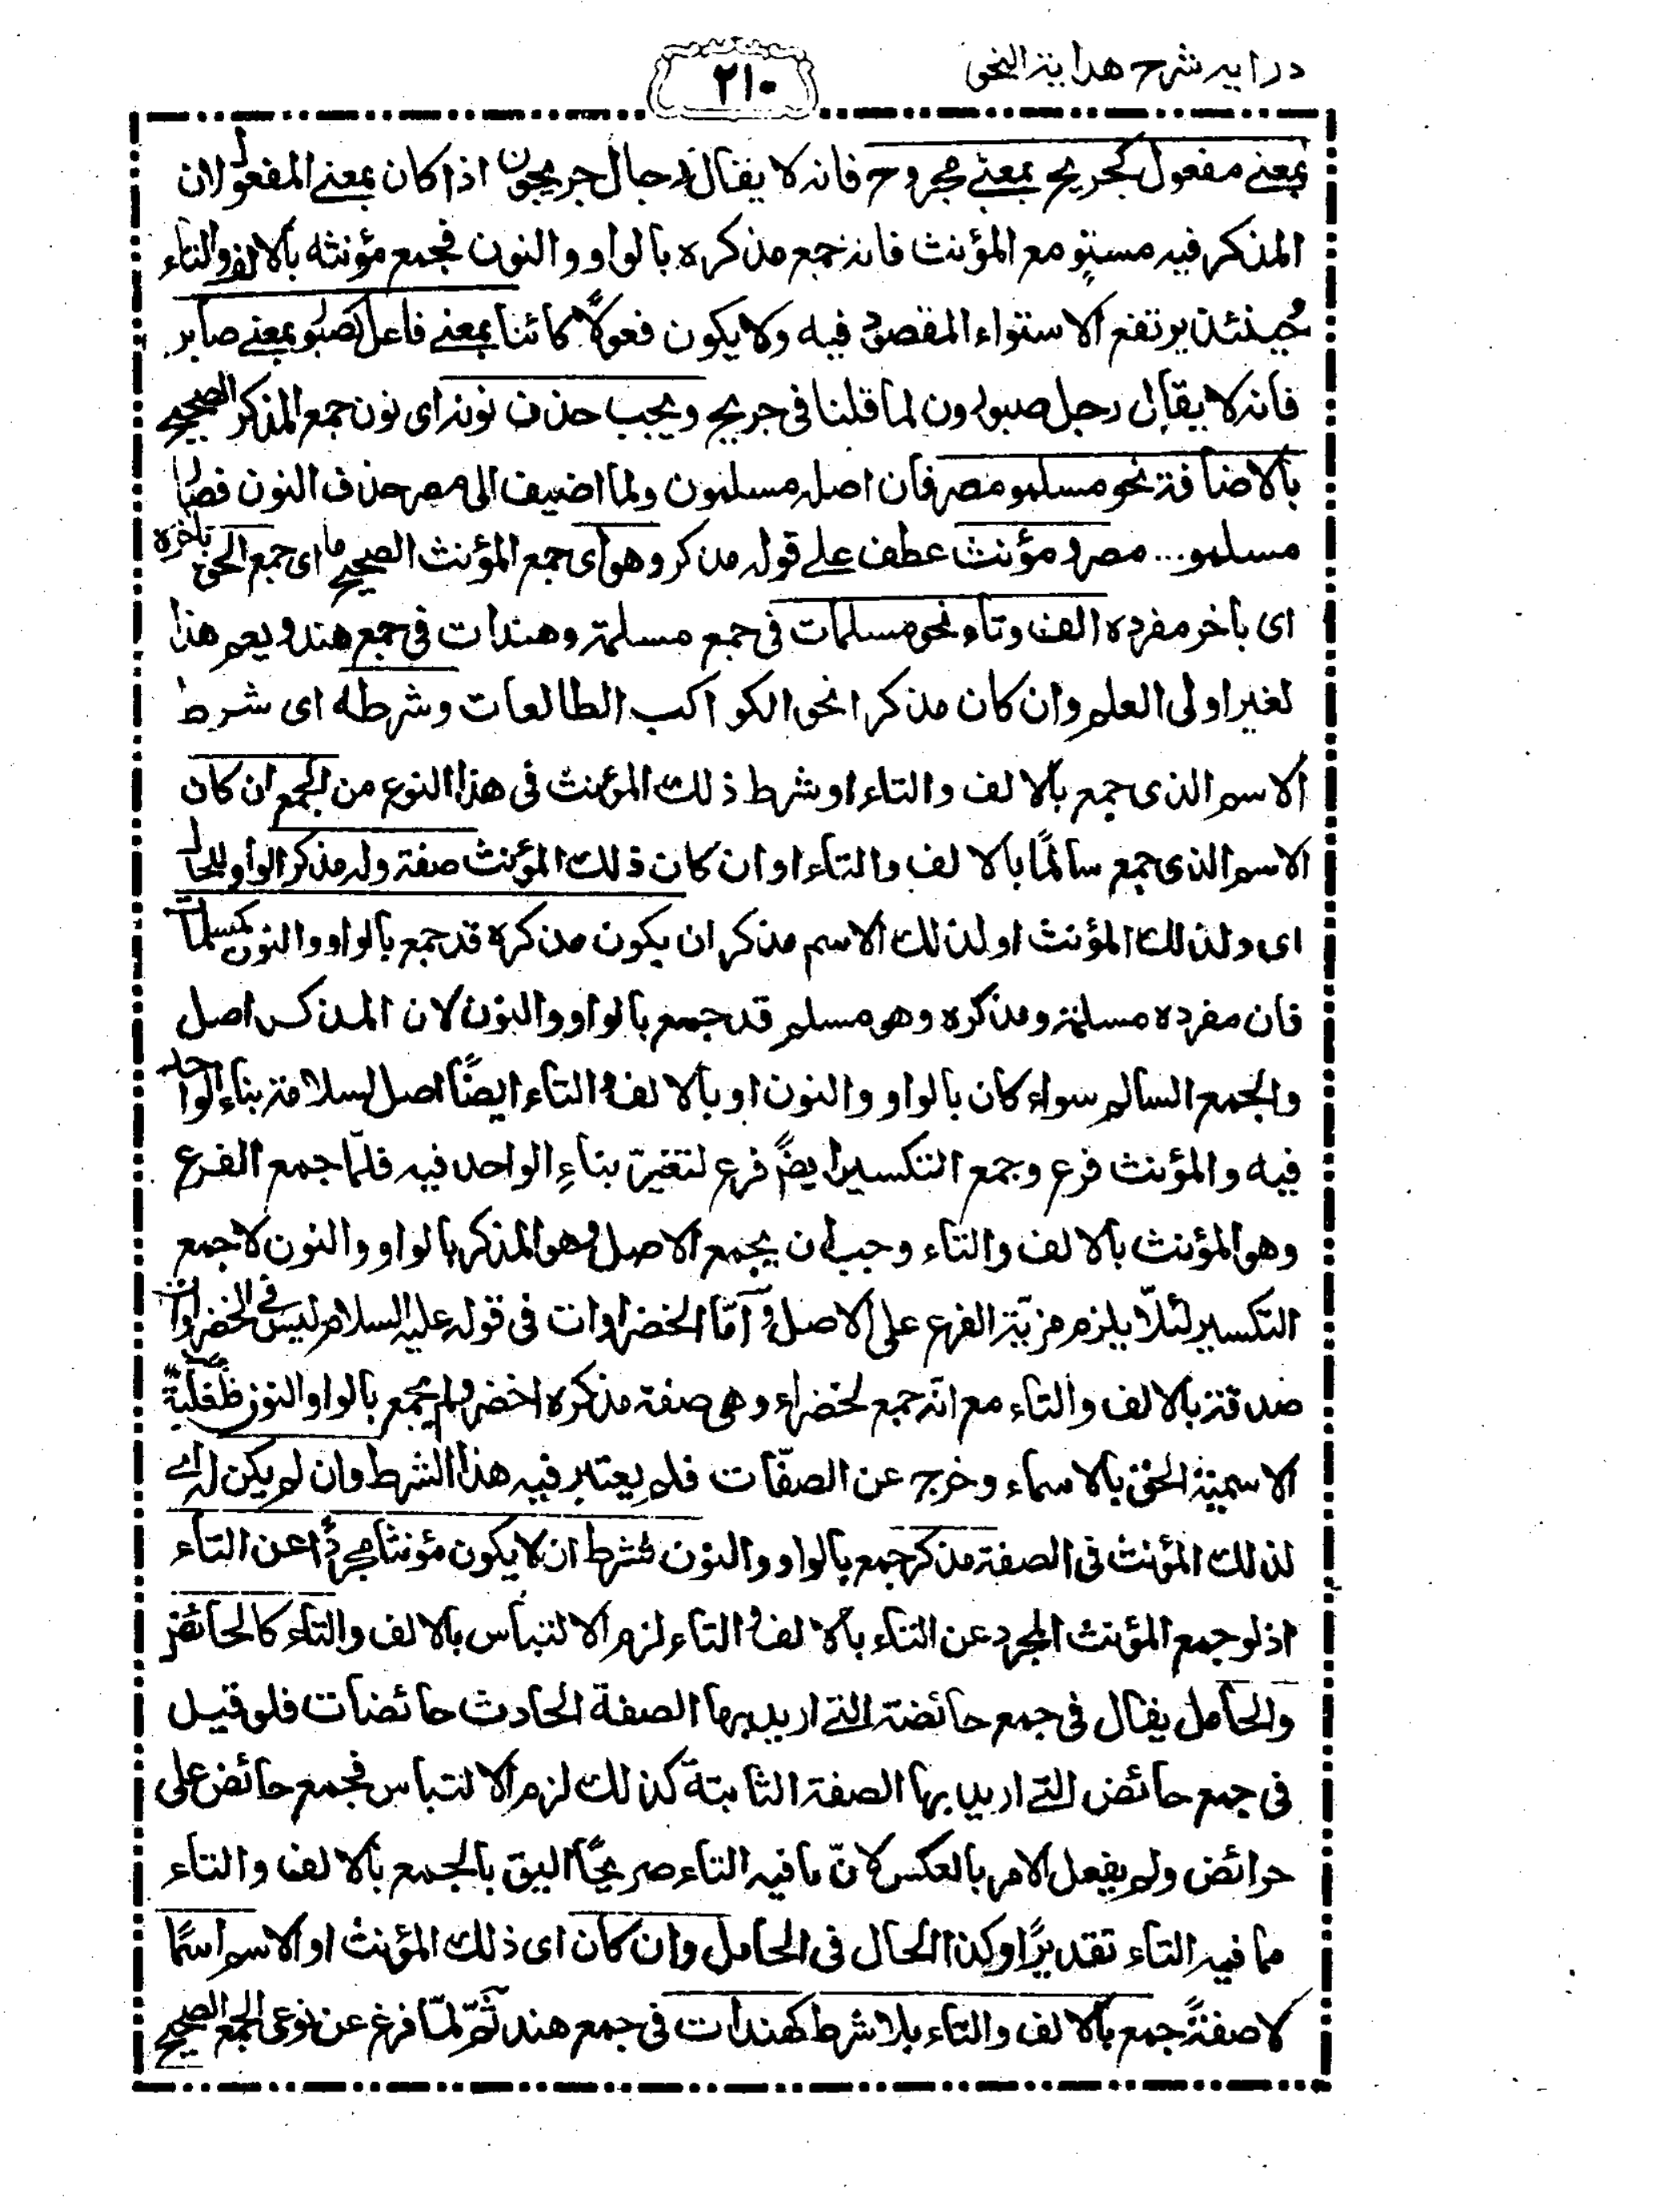 درایہ شرح ھدایۃ النحو
۲۱۰
بمعنے مفعول کجریح بمعنے مجروح فانہ لا یقال رجال جریحون اذا کان بمعنے المفعول لان
المذکر فیہ مستوٍ مع المؤنث فانہ جمع مذکرہ بالواو والنون فجمع مؤنثہ بالالف والتاء
حینئذ یرتفع الاستواء المقصود فیہ ولا یکون فعولاً کائنا بمعنے فاعل کصبور بمعنے صابر
فانہ لا یقال رجل صبورون لما قلنا فی جریح ویجب حذف نونہ ای نون جمع المذکر الصحیح
بالاضافۃ نحو مسلمو مصر فان اصلہ مسلمون ولما اضیف الی مصر حذف النون فصار
مسلمو... مصر ومؤنث عطف علے قولہ مذکر وھو ای جمع المؤنث الصحیح ما ای جمع الحق بآخرہ
ای بآخر مفردہ الف وتاء نحو مسلمات فی جمع مسلمۃ وھندات فی جمع ھند ویعم ھذا
لغیر اولی العلم وان کان مذکرا نحو الکواکب الطالعات وشرطہ ای شرط
الاسم الذی جمع بالالف والتاء او شرط ذلک المؤنث فی ھذا النوع من الجمع ان کان
الاسم الذی جمع سالمًا بالالف والتاء او ان کان ذلک المؤنث صفۃ ولہ مذکر الواو للحال
ای ولذلک المؤنث او لذلک الاسم مذکر ان یکون مذکرہ قد جمع بالواو والنون کمسلمات
فان مفردہ مسلمۃ ومذکرہ وھو مسلم قد جمع بالواو والنون لان المذکر اصل
والجمع السالم سواء کان بالواو والنون او بالالف والتاء ایضًا اصل لسلامۃ بناء الواحد
فیہ والمؤنث فرع وجمع التکسیر ایضًا فرع لتغیر بناءِ الواحد فیہ فلمّا جمع الفرع
وھو المؤنث بالالف والتاء وجب ان یجمع الاصل وھو المذکر بالواو والنون لا جمع
التکسیر لئلّا یلزم مزیّۃ الفرع علی الاصل وامّا الخضراوات فی قولہ علیہ السلام لیس فی الخضراوات
صدقۃ بالالف والتاء مع انہ جمع لخضراء وھی صفۃ مذکرہ اخضر ولم یجمع بالواو والنون فلغلبۃ
الاسمیۃ الحق بالاسماء وخرج عن الصفّات فلم یعتبر فیہ ھذا الشرط وان لم یکن لہ اے
لذلک المؤنث فی الصفۃ مذکر جمع بالواو والنون فشرط ان لا یکون مؤنثا مجردًا عن التاء
اذ لو جمع المؤنث المجرد عن التاء بالالف والتاء لزم الالتباس بالالف والتاء کالحائض
والحامل یقال فی جمع حائضۃ التے ارید بھا الصفۃ الحادث حائضات فلو قیل
فی جمع حائض التے ارید بھا الصفۃ الثابتۃ کذلک لزم الالتباس فجمع حائض علی
حوائض ولم یفعل الامر بالعکس لانّ ما فیہ التاء صریحًا الیق بالجمع بالالف والتاء
مما فیہ التاء تقدیرًا وکذا الحال فی الحامل وان کان ای ذلک المؤنث او الاسم اسمًا
لا صفۃً جمع بالالف والتاء بلا شرط کھندات فی جمع ھند ثمّ لمّا فرغ عن نوعی الجمع الصحیح